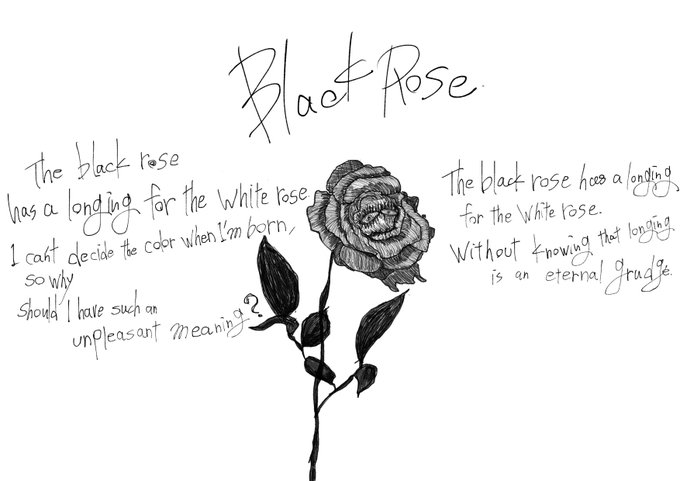 Black Rose.
The black rose
has a longing for the white rose
I can't decide the color when I'm born,
so why
should I have such an
unpleasant meaning?
The black rose has a longing
for the white rose.
Without knowing that longing
is an eternal grudge.